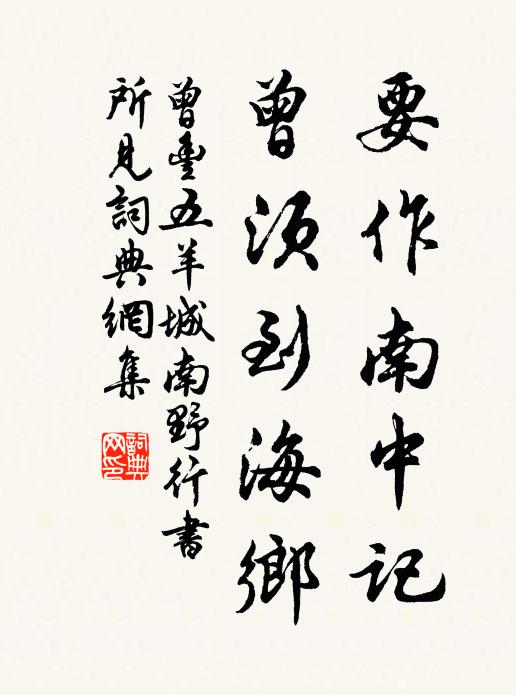 要作南中記
曾須到海鄉
曾豐五羊城南野行書
所見詞典網集
詞典
网印